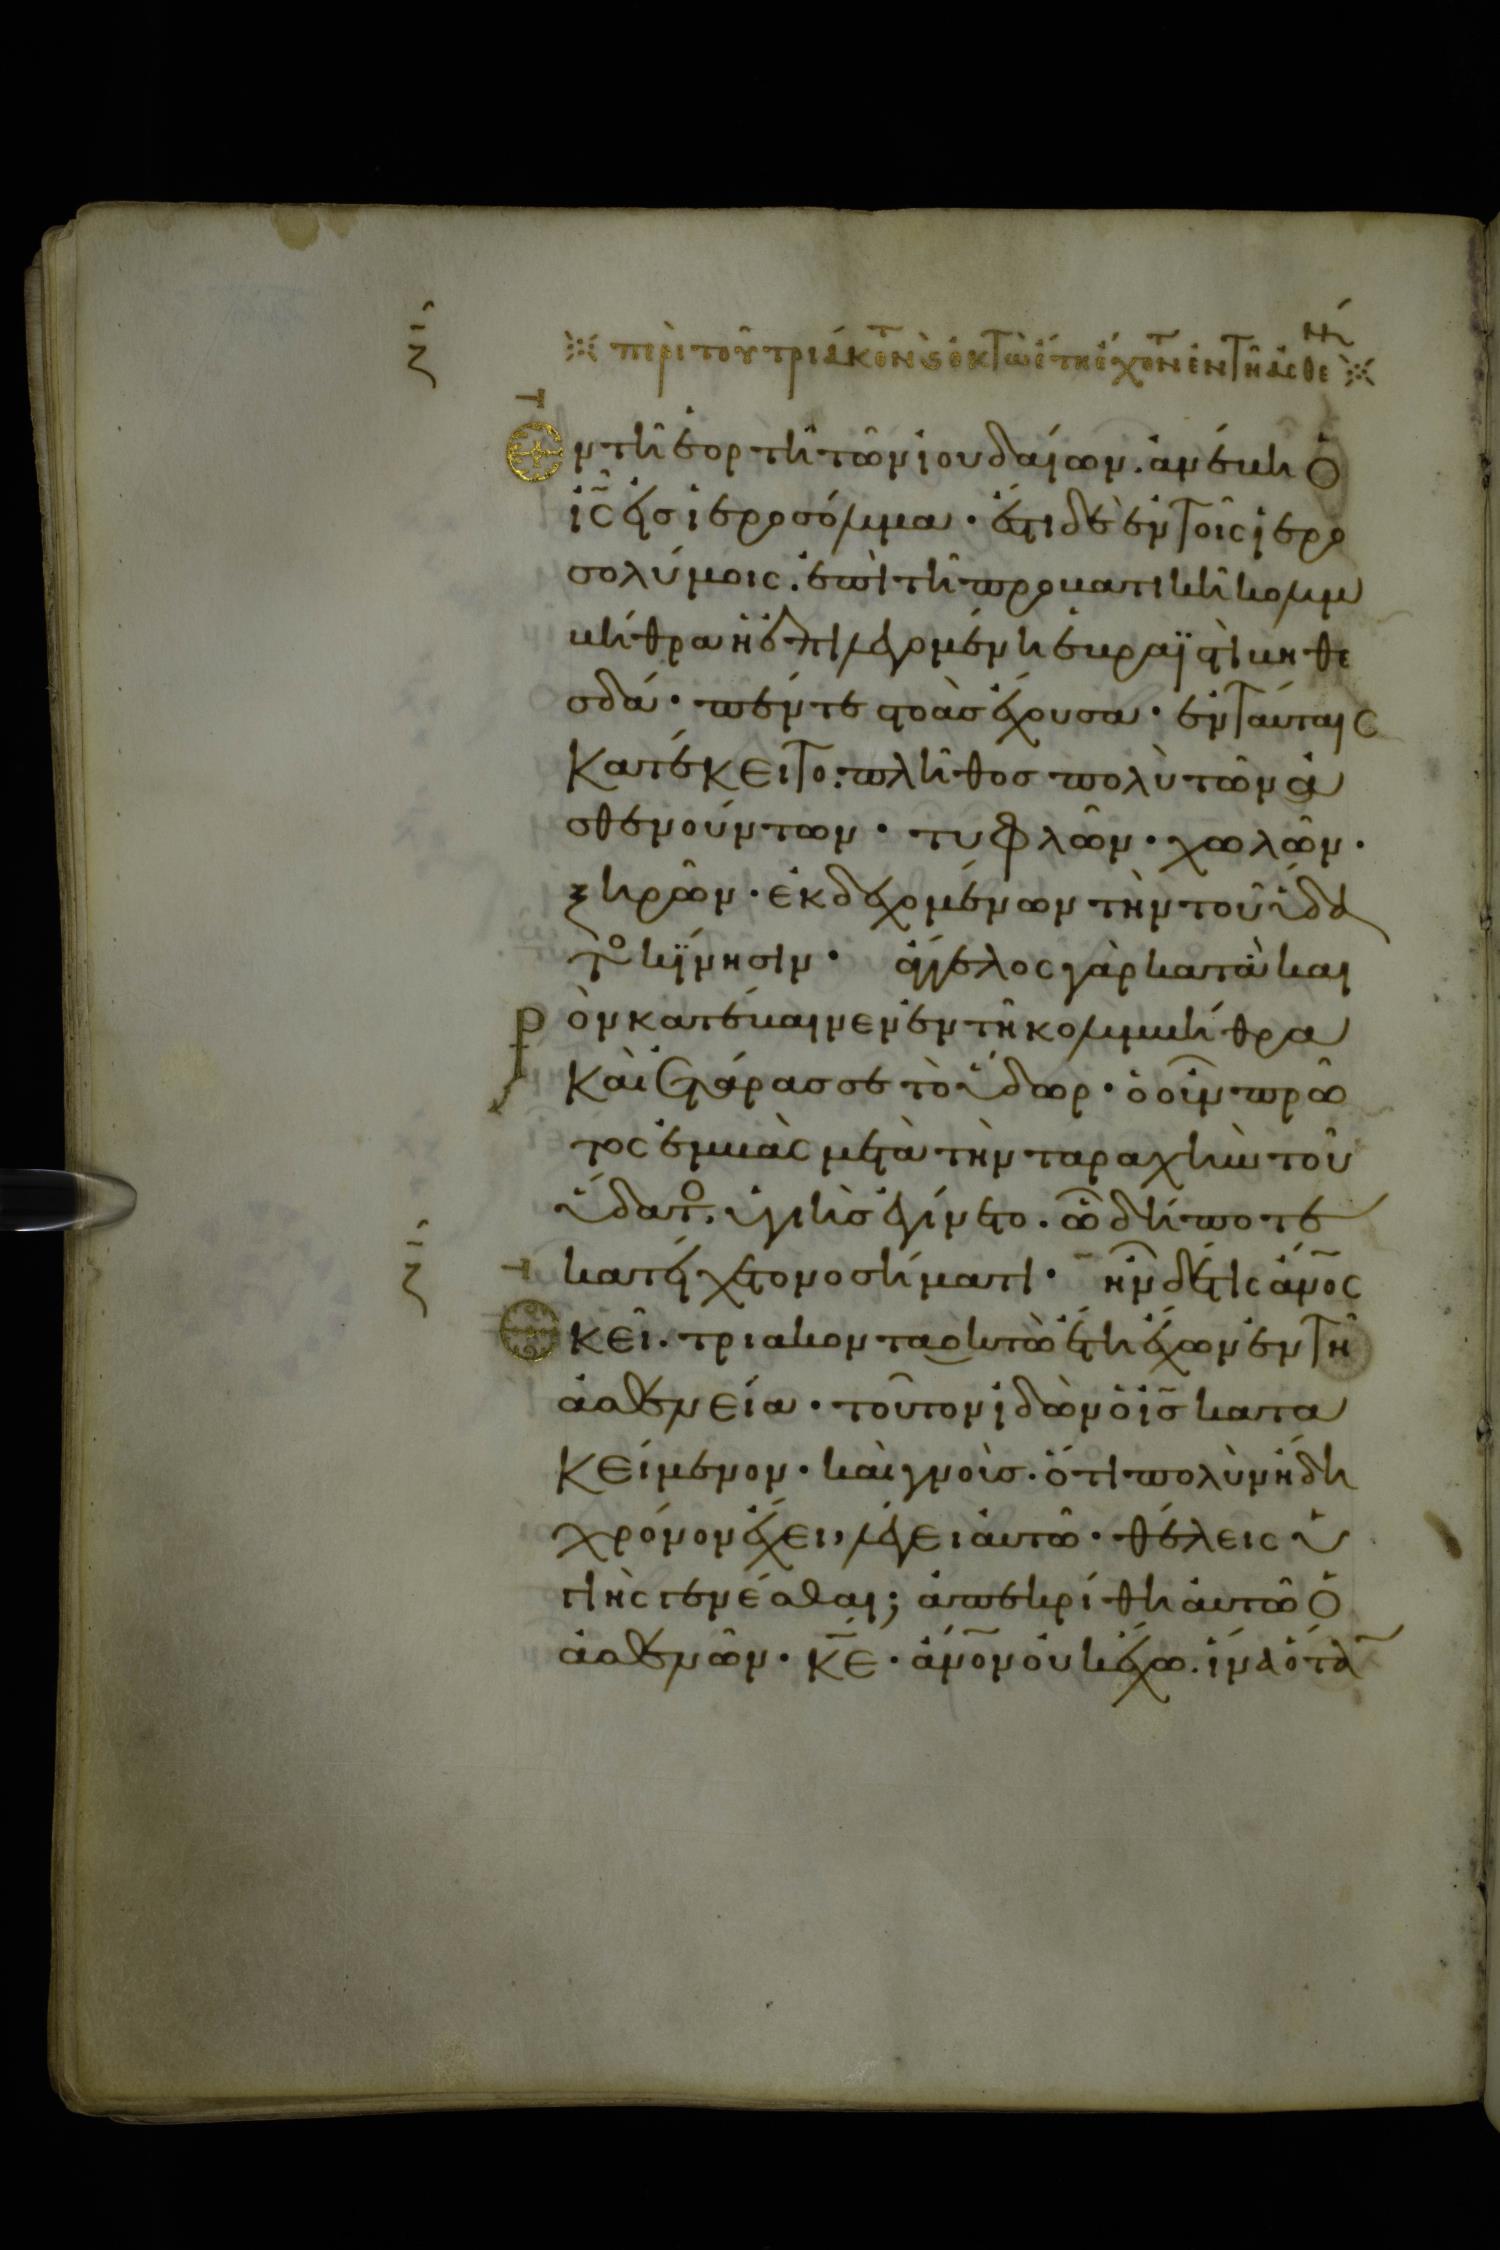 ※ περὶ τοῦ τριάκον(τ) ϛ ὀκτὼ ἔτη ἔχον(τ) ἐν τῆ ἀσθε ※
Ἐν τῆ ἑορτῆ τῶν ἰουδαίων. ἀνέβη ὁ
ἰς̅ εἰς ἱεροσόλυμα · ἔστι δὲ ἐν τοῖς ἱερο
σολύμοις. ἐπὶ τῆ προβατικῆ κολυμ
βήθρα ἡ ἐπιλεγομένη ἑβραϊστὶ βηθε
σδά · πέντε στοὰς ἔχουσα · ἐν ταύταις
κατέκειτο. πλῆθος πολὺ τῶν ἀ
σθενούντων · τυφλῶν · χωλῶν ·
ξηρῶν · ἐκδεχομένων τὴν τοῦ ὕδα
το κίνησιν · ἄγγελος γὰρ κατὰ και
ρὸν κατέβαινεν ἐν τῆ κολυμβήθρα
καὶ ἐτάρασσε τὸ ὕδωρ · ὁ οὖν πρῶ
τος ἐμβὰς μετὰ τὴν ταραχὴν τοῦ
ὕδατο. ὑγιὴς ἐγίνετο. ὧ δήποτε
κατείχετο νοσήματι · ἦν δέ τις ἄνο̅ς
ἐκεῖ. τριακονταοκτὼ ἔτη ἔχων ἐν τῆ
ἀσθενεία · τοῦτον ἰδὼν ὁ ἰς̅ κατα
κείμενον · καὶ γνοὺς. ὅτι πολὺν ἤδη
χρόνον ἔχει, λέγει αὐτῶ · θέλεις ὑ
γιὴς γενέσθαι; ἀπεκρίθη αὐτῶ ὁ
ἀσθενῶν · κ̅ε · ἄνο̅ν οὐκ ἔχω. ἵνα ὅτα̅